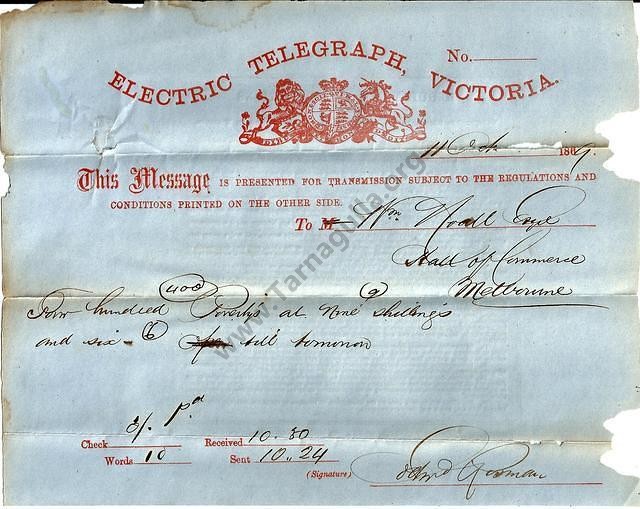 ELECTRIC TELEGRAPH, VICTORIA.
No.
11 Oct 1869.
This Message IS PRESENTED FOR TRANSMISSION SUBJECT TO THE REGULATIONS AND
CONDITIONS PRINTED ON THE OTHER SIDE.
To M Wm Noall Esqr
Hall of Commerce
Melbourne
Four hundred (400) at Nine (9) shillings
and six - (6) till tomorrow
Check 3/. Pd Received 10.30
Words 10 Sent 10..24
(Signature)
www.Tarnagulla.org